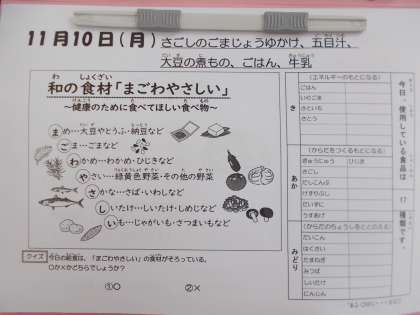 11月10日(月) さごしのごまじょうゆかけ、五目汁、
大豆の煮もの、ごはん、牛乳
和の食材「まごわやさしい」
～健康のために食べてほしい食べ物～
ま め…大豆やとうふ・納豆など
ご ま…ごまなど
わ かめ…わかめ・ひじきなど
や さい…緑黄色野菜・その他の野菜
さ かな…さば・いわしなど
し いたけ…しいたけ・しめじなど
い も…じゃがいも・さつまいもなど
クイズ 今日の給食は、「まごわやさしい」の食材がそろっている。
○か×かどちらでしょうか?
①○ ②×
今日、使用している食品は
17
種類です。
き
(エネルギーのもとになる)
ごはん
いりごま
さといも
さとう
あか
(からだをつくるもとになる)
ぎゅうにゅう ひじき
さごし
だいこんぶ
だいず
うすあげ
みどり
(からだのちょうしをととのえる)
だいこん
はくさい
たまねぎ
みつば
しいたけ
にんじん